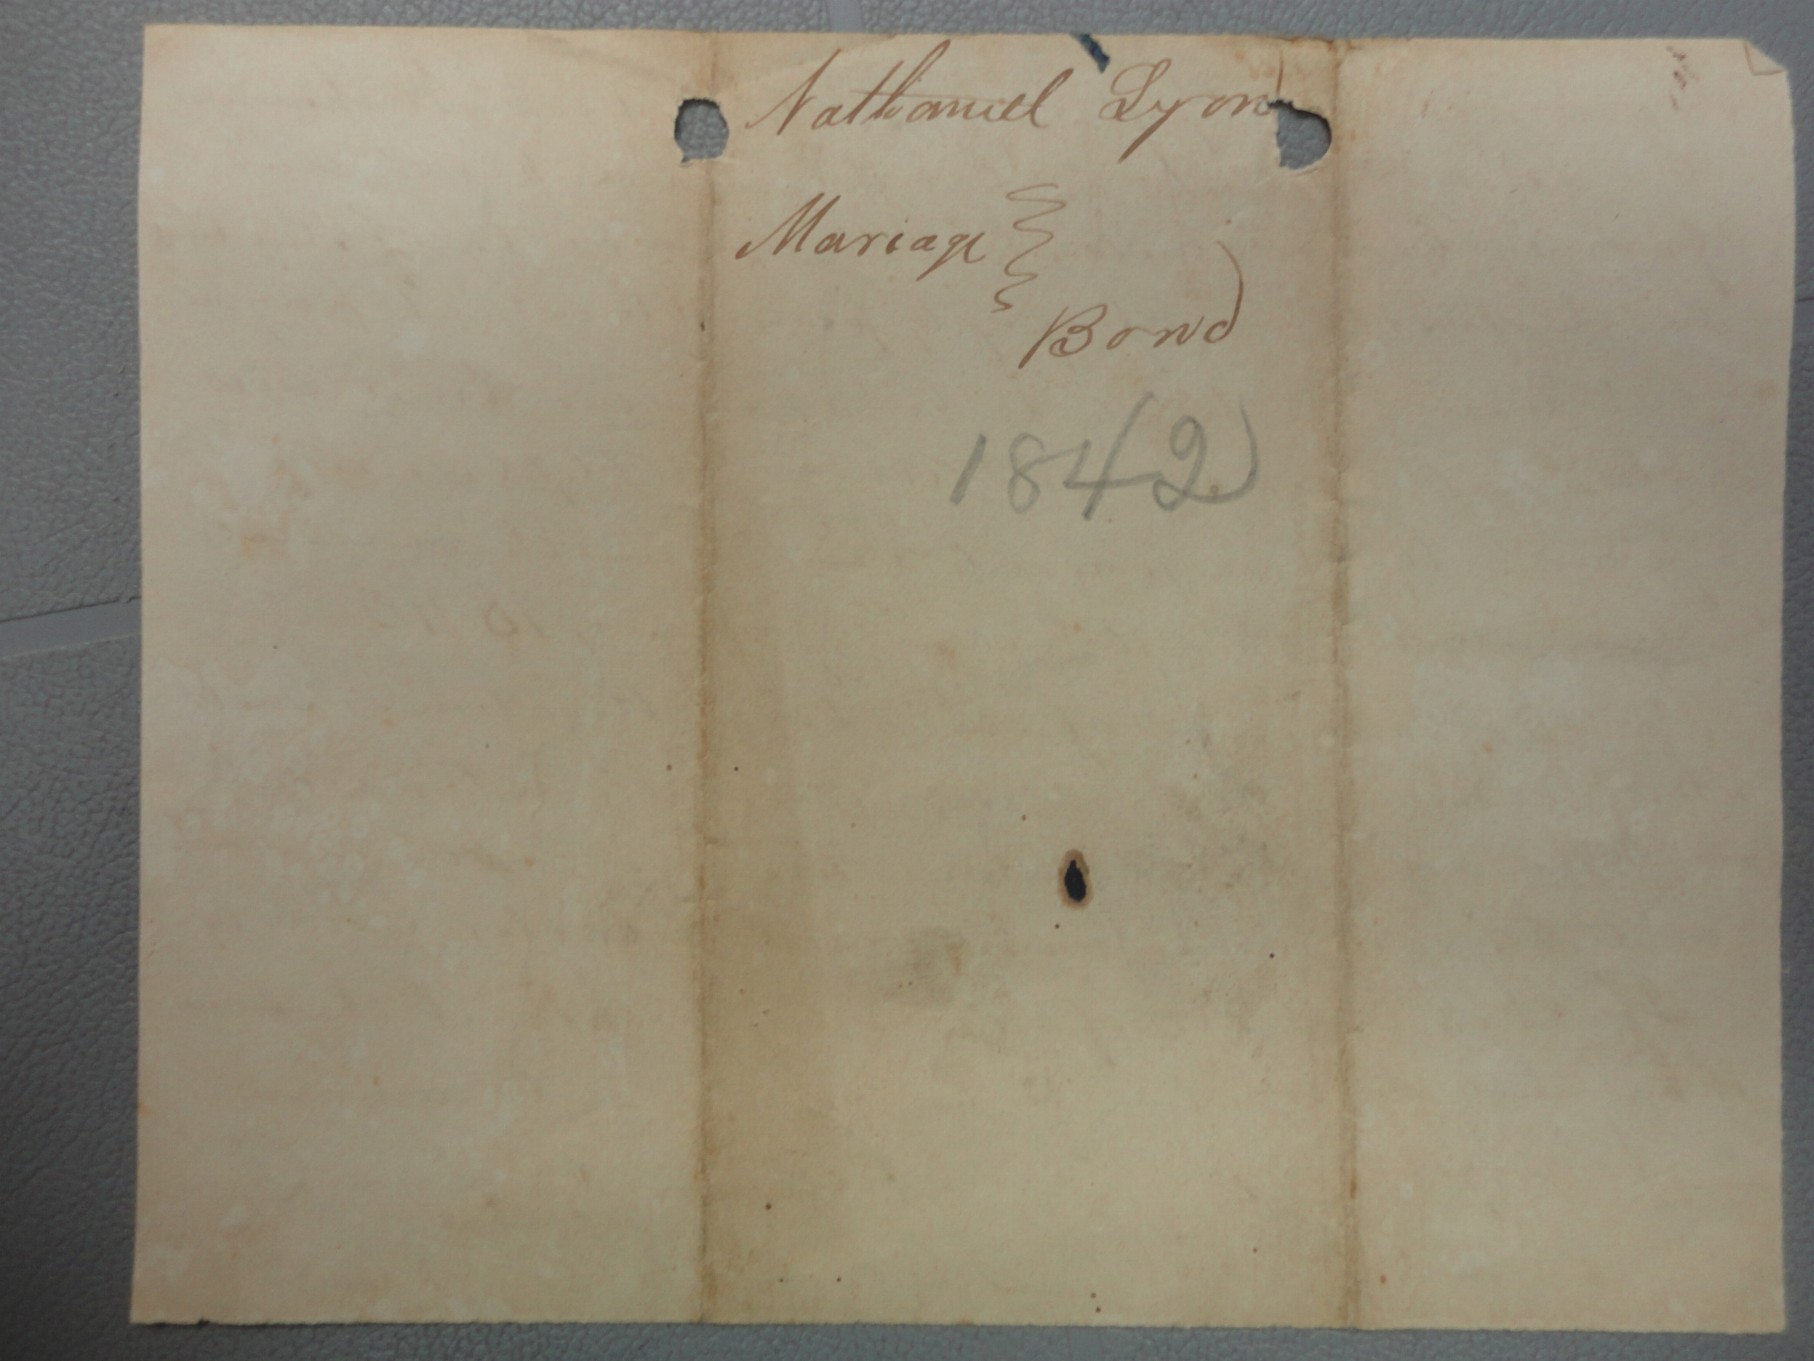 Nathaniel Lyon
Mariage
Bond
1842